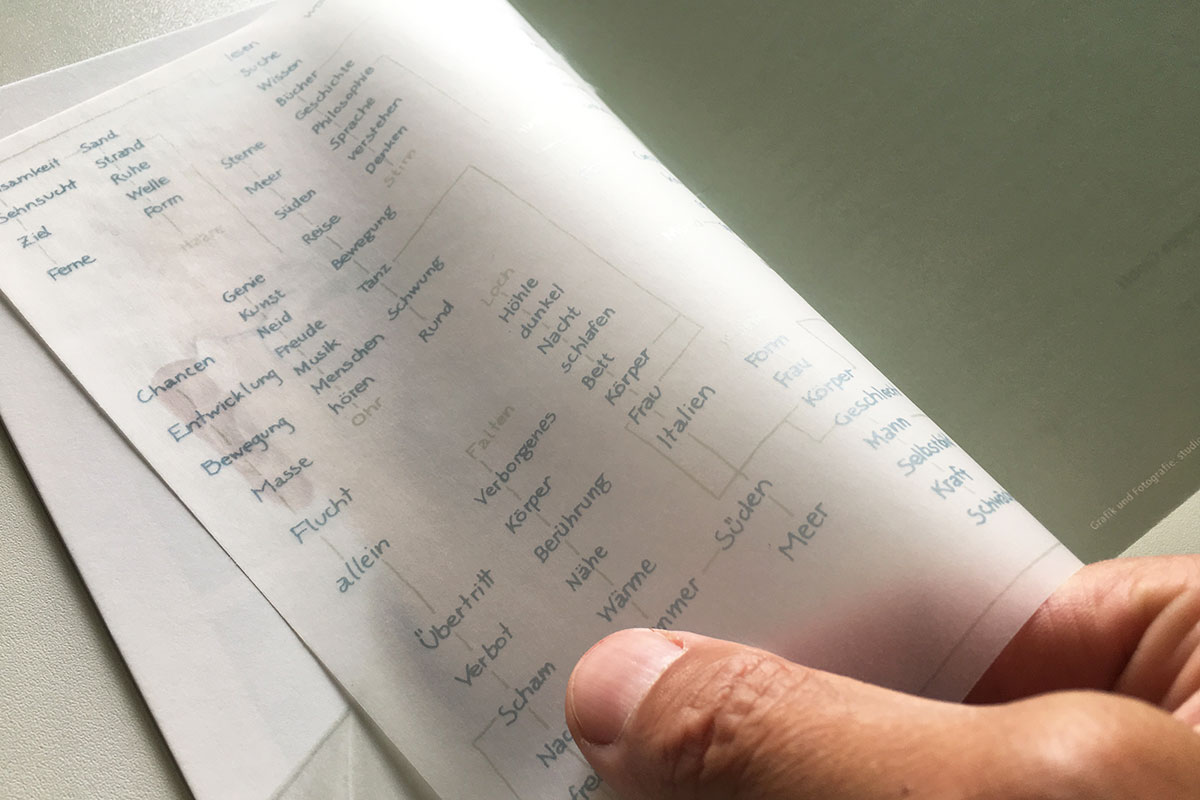 lesen
Suche
Wissen
Bücher
Geschichte
Philosophie
Sprache
verstehen
Denken
Stirn
Sand
Strand
Ruhe
Welle
Form
Haare
Sehnsucht
Ziel
Ferne
Sterne
Meer
Süden
Reise
Bewegung
Tanz
Schwung
Rund
Genie
Kunst
Neid
Freude
Musik
Menschen
hören
Ohr
Chancen
Entwicklung
Bewegung
Masse
Flucht
allein
Übertritt
Verbot
Scham
Loch
Höhle
dunkel
Nacht
schlafen
Bett
Körper
Frau
Italien
Falten
Verborgenes
Körper
Berührung
Nähe
Wärme
Süden
Meer
Form
Frau
Körper
Mann
Kraft
Grafik und Fotografie: